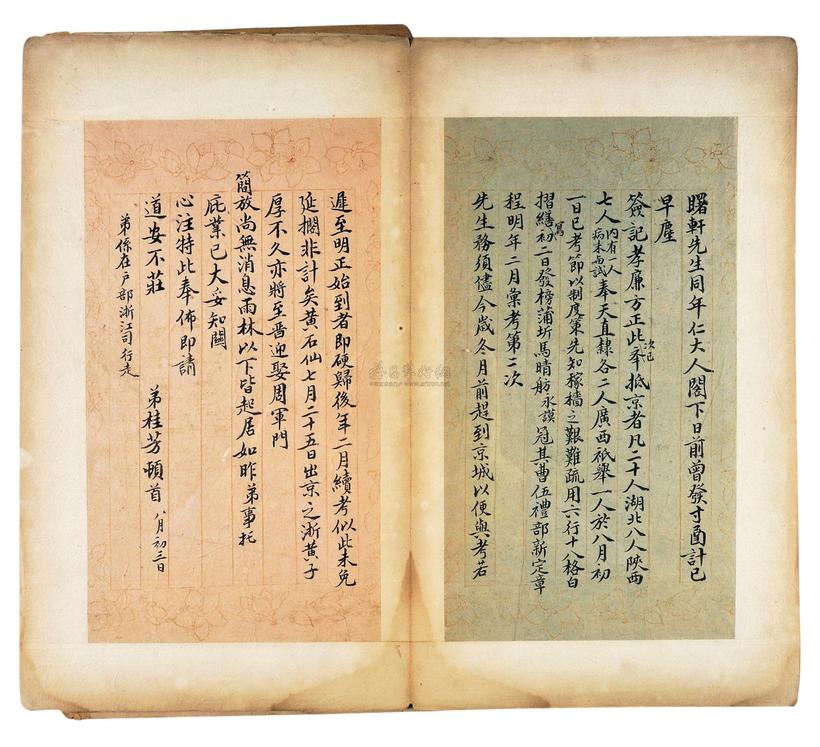 曙軒先生同年仁大人閣下日前曾發寸函計已
早塵
簽記孝廉方正此次已奉抵京者凡二十人湖北八人陝西
七人內有一人病未與試奉天直隸各二人廣西祇舉一人於八月初
一日已考節以制度策先知稼穡之艱難疏用六行十八格白
摺繕寫初二日發榜蒲圻馬晴舫永謨冠其曹伍禮部新定章
程明年二月彙考第二次
先生務須儘今歲冬月前趕到京城以便與考若
遲至明正始到者即硬歸後年二月續考似此未免
延擱非計矣黃石仙七月二十五日出京之浙黃子
厚不久亦將至晋迎娶周軍門
簡放尚無消息雨林以下皆起居如昨弟事托
庇業已大妥知關
心注特此奉佈即請
道安不莊
弟桂芳頓首 八月初三日
弟係在戶部浙江司行走